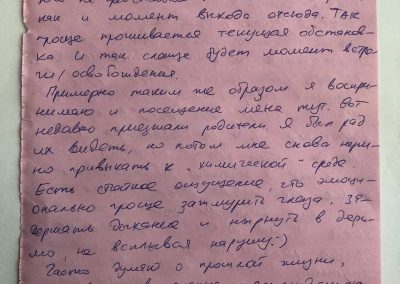 как и момент выхода отсюда. Так
проще проживается текущая обстанов-
ка. И так слаще будет момент встре-
чи/освобождения.
Примерно таким же образом я воспри-
нимаю и посещение меня тут. Вот
недавно приезжали родители. Я был рад
их видеть, но потом мне снова нужно
привыкать к „химической" среде.
Есть стойкое ощущение, что эмоци-
онально проще зажмурить глаза, за-
держать дыхание и нырнуть в дерь-
мо, не всплывая наружу :)
Часто думаю о прошлой жизни,